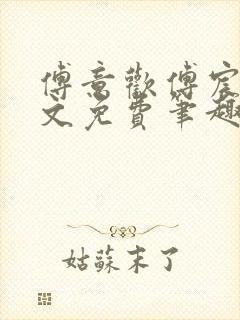 傅意歡傅宸
文免費筆趣
姑蘇末了